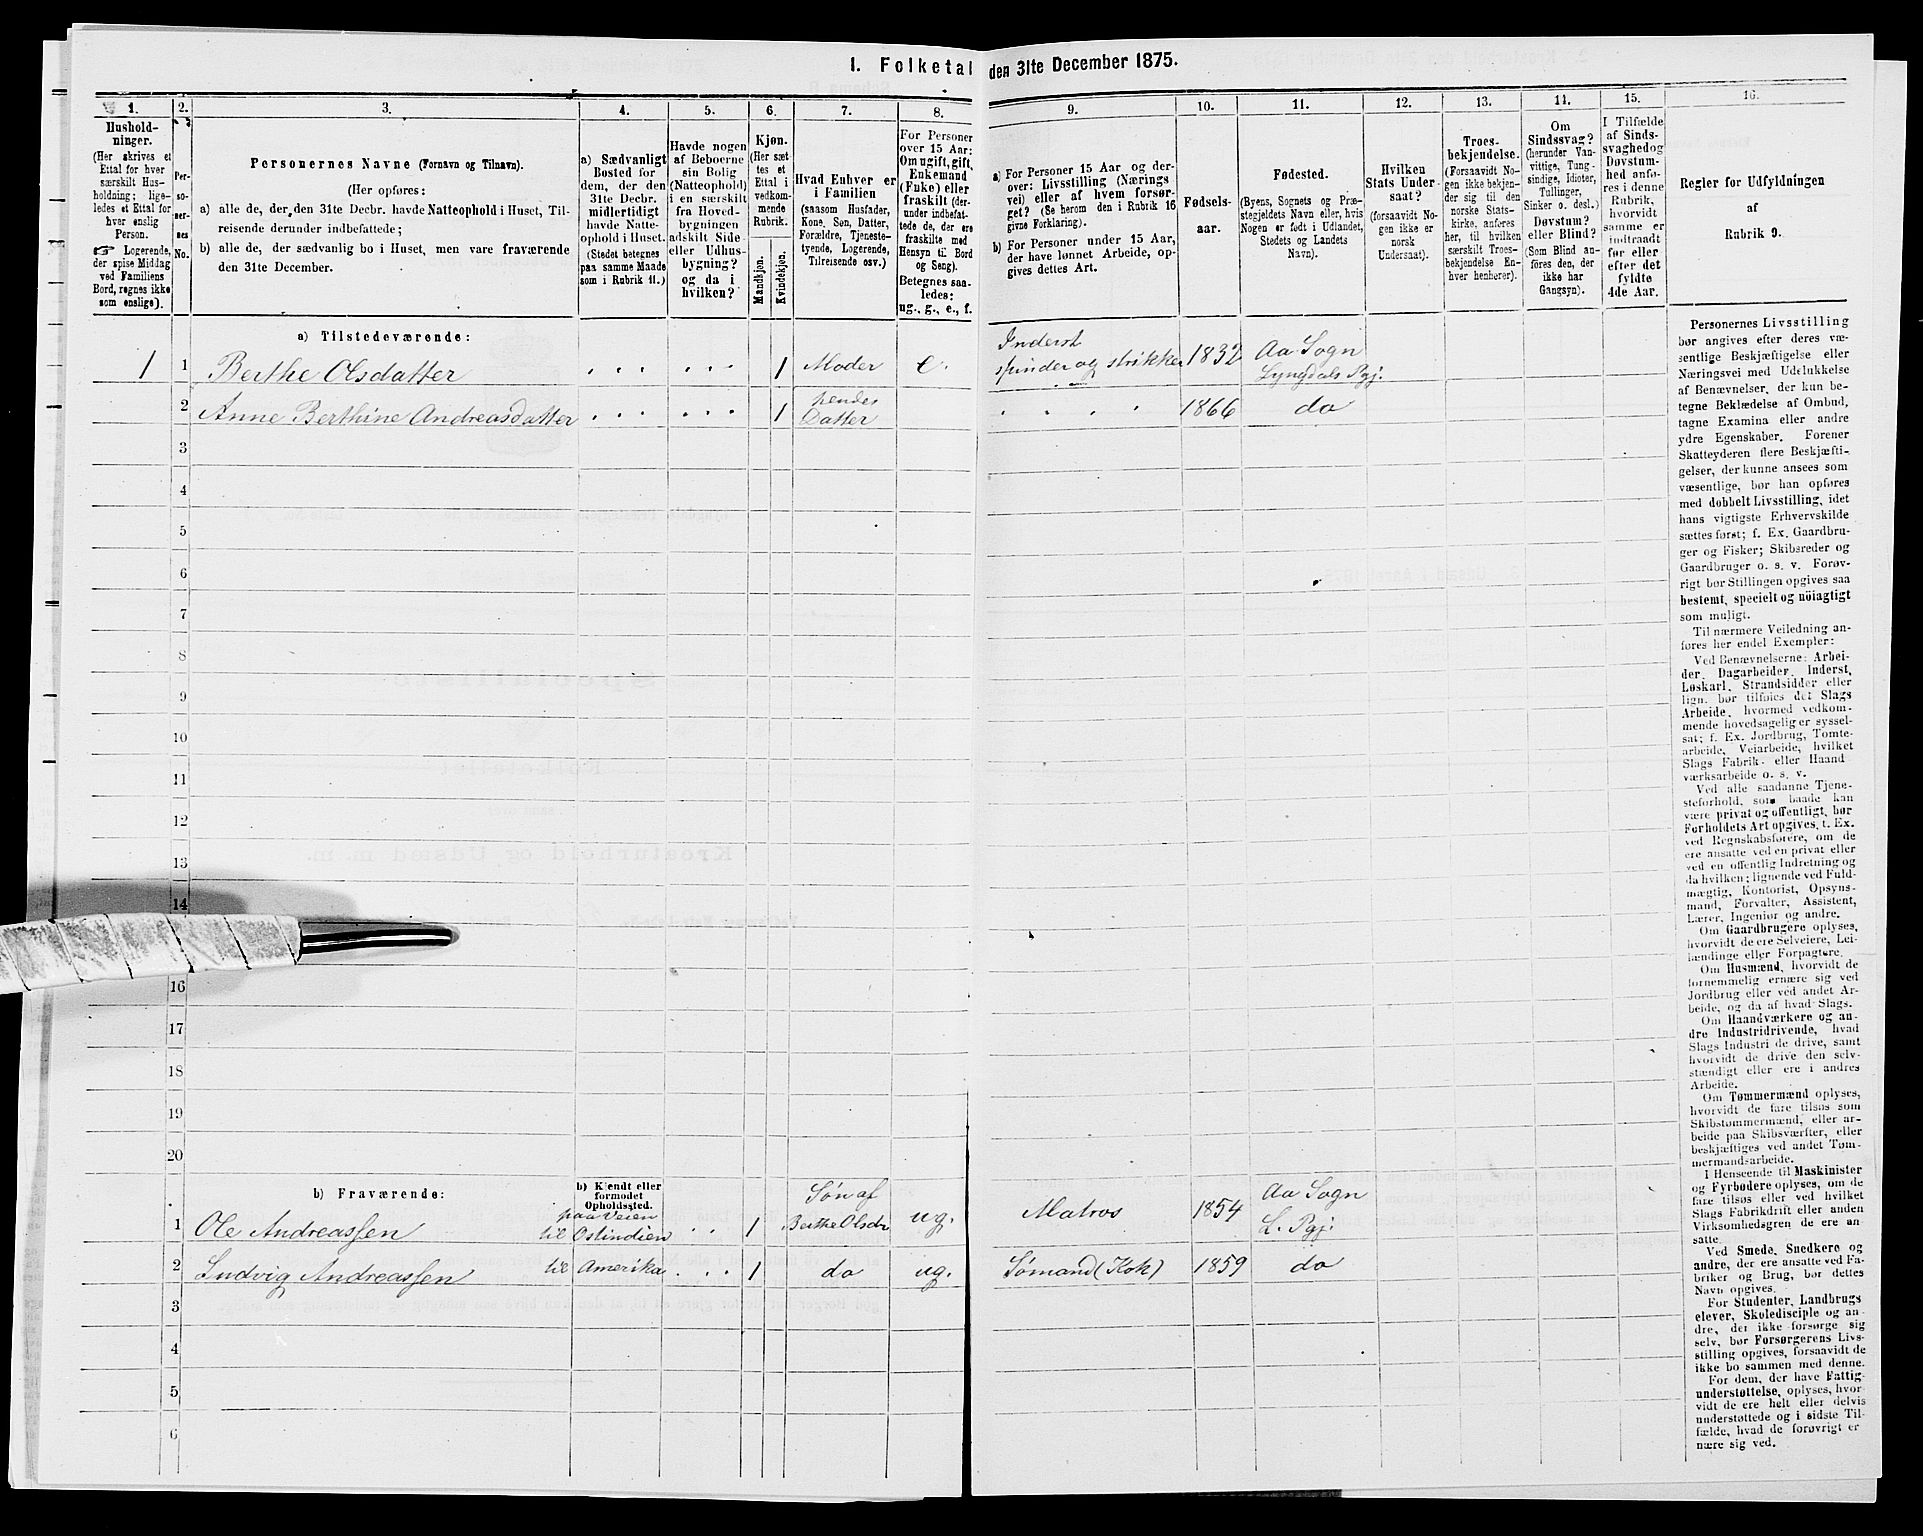 1. Folketal den 31te December 1875.
1.
Hushold-
ninger.
(Her skrives et
Ettal for hver
særskilt Hus-
holdning; lige-
ledes et Ettal for
hver enslig
Person.
☞ Logerende,
der spise Middag
ved Familiens
Bord, regnes ikke
som enslige).
2.
Per-
so-
ner-
nes
No.
3.
Personernes Navne (Fornavn og Tilnavn).
(Her opføres:
a) alle de, der den 31te Decbr. havde Natteophold i Huset, Til-
reisende derunder indbefattede;
b) alle de, der sædvanlig bo i Huset, men vare fraværende
den 31te December.
4.
a) Sædvanligt
Bosted for
dem, der den
31te Decbr.
midlertidigt
havde Natte-
ophold i Huset.
(Stedet betegnes
paa samme Maade
som i Rubrik 11.)
5.
Havde nogen
af Beboerne
sin Bolig
(Natteophold)
i en særskilt
fra Hoved-
bygningen
adskilt Side-
eller Udhus-
bygning?
og da i
hvilken?
6.
Kjøn.
(Her sæt-
tes et
Ettal i
vedkom-
mende
Rubrik.
Mandkjøn.
Kvindekjøn.
7.
Hvad Enhver er
i Familien
(saasom Husfader,
Kone, Søn, Datter,
Forældre, Tjeneste-
tyende, Logerende,
Tilreisende osv.)
8.
For Personer
over 15 Aar:
Om ugift, gift,
Enkemand
(Enke) eller
fraskilt (der-
under indbefat-
tede de, der ere
fraskilte med
Hensyn til Bord
og Seng).
Betegnes saa-
ledes:
ug., g., e., f.
9.
a) For Personer 15 Aar og der-
over: Livsstilling (Nærings-
vei) eller af hvem forsør-
get? (Se herom den i Rubrik 16
givne Forklaring).
b) For Personer under 15 Aar,
der have lønnet Arbeide, op-
gives dettes Art.
10.
Fødsels-
aar.
11.
Fødested.
(Byens, Sognets og Præ-
stegjeldets Navn eller, hvis
Nogen er født i Udlandet,
Stedets og Landets
Navn).
12.
Hvilken
Stats Under-
saat?
(forsaavidt No-
gen ikke er
norsk
Undersaat).
13.
Troes-
bekjendelse.
(Forsaavidt No-
gen ikke bekjen-
der sig til den
norske Stats-
kirke, anføres
her, til hvilken
særskilt Troes-
bekjendelse En-
hver henhører).
14.
Om
Sindssvag?
(herunder Van-
vittige, Tung-
sindige, Idioter,
Tullinger,
Sinker o. desl.)
Døvstum?
eller Blind?
(Som Blind an-
føres den, der
ikke har
Gangsyn).
15.
I Tilfælde
af Sinds-
svaghed og
Døvstum-
hed anfø-
res i denne
Rubrik,
hvorvidt
samme er
indtraadt
før eller
efter det
fyldte
4de Aar.
16.
Regler for Udfyldningen
af
Rubrik 9.
a) Tilstedeværende:
1 1 Berthe Olsdatter 1 Moder e. Inderst spinder og strikker 1832 Aa Sogn Lyngdals Pgj.
2 Anne Berthine Andreasdatter 1 hendes Datter 1866 do
3
4
5
6
7
8
9
10
11
12
13
14
16
17
18
19
20
b) Fraværende:
b) Kjendt eller
formodet
Opholdssted.
1 Ole Andreassen paa Veien til Ostindien 1 Søn af Berthe Olsdr ug. Matros 1854 Aa Sogn L. Pgj.
2 Ludvig Andreassen til Amerika 1 do ug. Sømand (Kok) 1859 do
3
4
5
6
Personernes Livsstilling
bør angives efter deres væ-
sentlige Beskjæftigelse eller
Næringsvei med Udelukkelse
af Benævnelser, der kun be-
tegne Beklædelse af Ombud,
tagne Examina eller andre
ydre Egenskaber. Forener
Skatteyderen flere Beskjæfti-
gelser, der kunne ansees som
væsentlige, bør han opføres
med dobbelt Livsstilling, idet
hans vigtigste Erhvervskilde
sættes først; f. Ex. Gaardbru-
ger og Fisker; Skibsreder og
Gaardbruger o. s. v. Forøv-
rigt bør Stillingen opgives saa
bestemt, specielt og nöiagtigt
som muligt.
Til nærmere Veiledning an-
føres her endel Exempler:
Ved Benævnelserne: Arbei-
der, Dagarbeider, Inderst,
Løskarl, Strandsidder eller
lign. bør tilføies det Slags
Arbeide, hvormed vedkom-
mende hovedsagelig er syssel-
sat; f. Ex. Jordbrug, Tomte-
arbeide, Veiarbeide, hvilket
Slags Fabrik- eller Haand-
værksarbeide o. s. v.
Ved alle saadanne Tjene-
steforhold, som baade kan
være privat og offentligt, bør
Forholdets Art opgives, t. Ex.
ved Regnskabsførere, om de
ere ansatte ved en privat eller
ved en offentlig Indretning og
da hvilken; lignende ved Fuld-
mægtig, Kontorist, Opsyns-
mand, Forvalter, Assistent,
Lærer, Ingeniør og andre.
Om Gaardbrugere oplyses,
hvorvidt de ere Selveiere, Lei-
lændinge eller Forpagtere.
Om Husmænd, hvorvidt de
fornemmelig ernære sig ved
Jordbrug eller ved andet Ar-
beide, og da af hvad Slags.
Om Haandværkere og an-
dre Industridrivende, hvad
Slags Industri de drive, samt
hvorvidt de drive den selv-
stændigt eller ere i andres
Arbeide.
Om Tømmermænd oplyses,
hvorvidt de fare tilsøs som
Skibstømmermænd, eller ar-
beide paa Skibsværfter, eller
beskjæftiges ved andet Tøm-
mermandsarbeide.
I Henseende til Maskinister
og Fyrbødere oplyses, om de
fare tilsøs eller ved hvilket
Slags Fabrikdrift eller anden
Virksomhedsgren de ere an-
satte.
Ved Smede, Snedkere og
andre, der ere ansatte ved Fa-
briker og Brug, bør dettes
Navn opgives.
For Studenter, Landbrugs-
elever, Skoledisciple og an-
dre, der ikke forsørge sig
selv, bør Forsørgerens Livs-
stilling opgives, forsaavidt de
ikke bo sammen med denne.
For dem, der have Fattig-
understøttelse, oplyses, hvor-
vidt de ere helt eller delvis
understøttede og i sidste Til-
fælde, hvad de forøvrigt er-
nære sig ved.